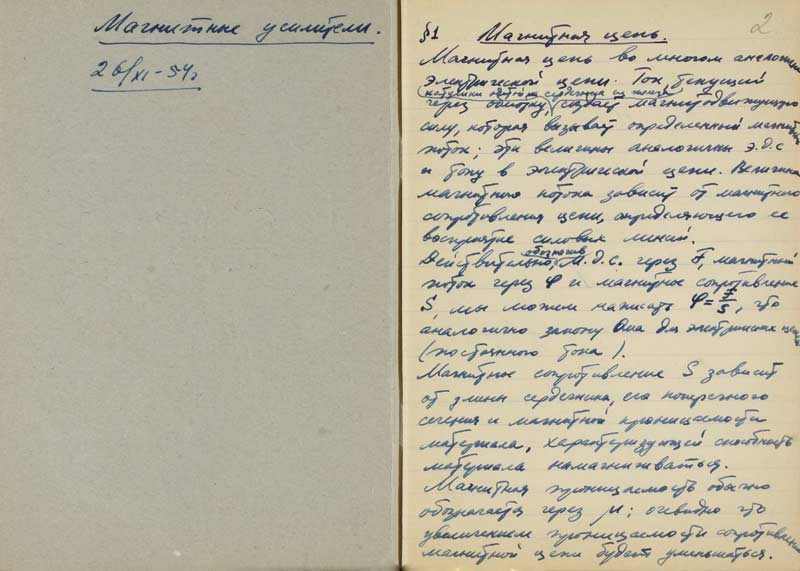 Магнитные усилители.
26/XI-54г
2
§1 Магнитная цепь.
Магнитная цепь во многом аналогична
электрической цепи. Ток, текущий
(катушки надетой на сердечник из железа)
через обмотку, создаёт магнитодвижущую
силу, которая вызывает определенный магнитный
поток; эти величины аналогичны э.д.с
и току в электрической цепи. Величина
магнитного потока зависит от магнитного
сопротивления цепи, определяющего ее
восприятие силовых линий.
обозначив
Действительно, М.д.с. через F, магнитный
поток через φ и магнитное сопротивление
S, мы можем написать φ = F/S, что
аналогично закону Ома для электрических цепей
(постоянного тока).
Магнитное сопротивление S зависит
от длины сердечника, его поперечного
сечения и магнитной проницаемости
материала, характеризующей способность
материала намагничиваться.
Магнитная проницаемость обычно
обозначается через μ; очевидно что
увеличением проницаемости сопротивление
магнитной цепи будет уменьшаться.